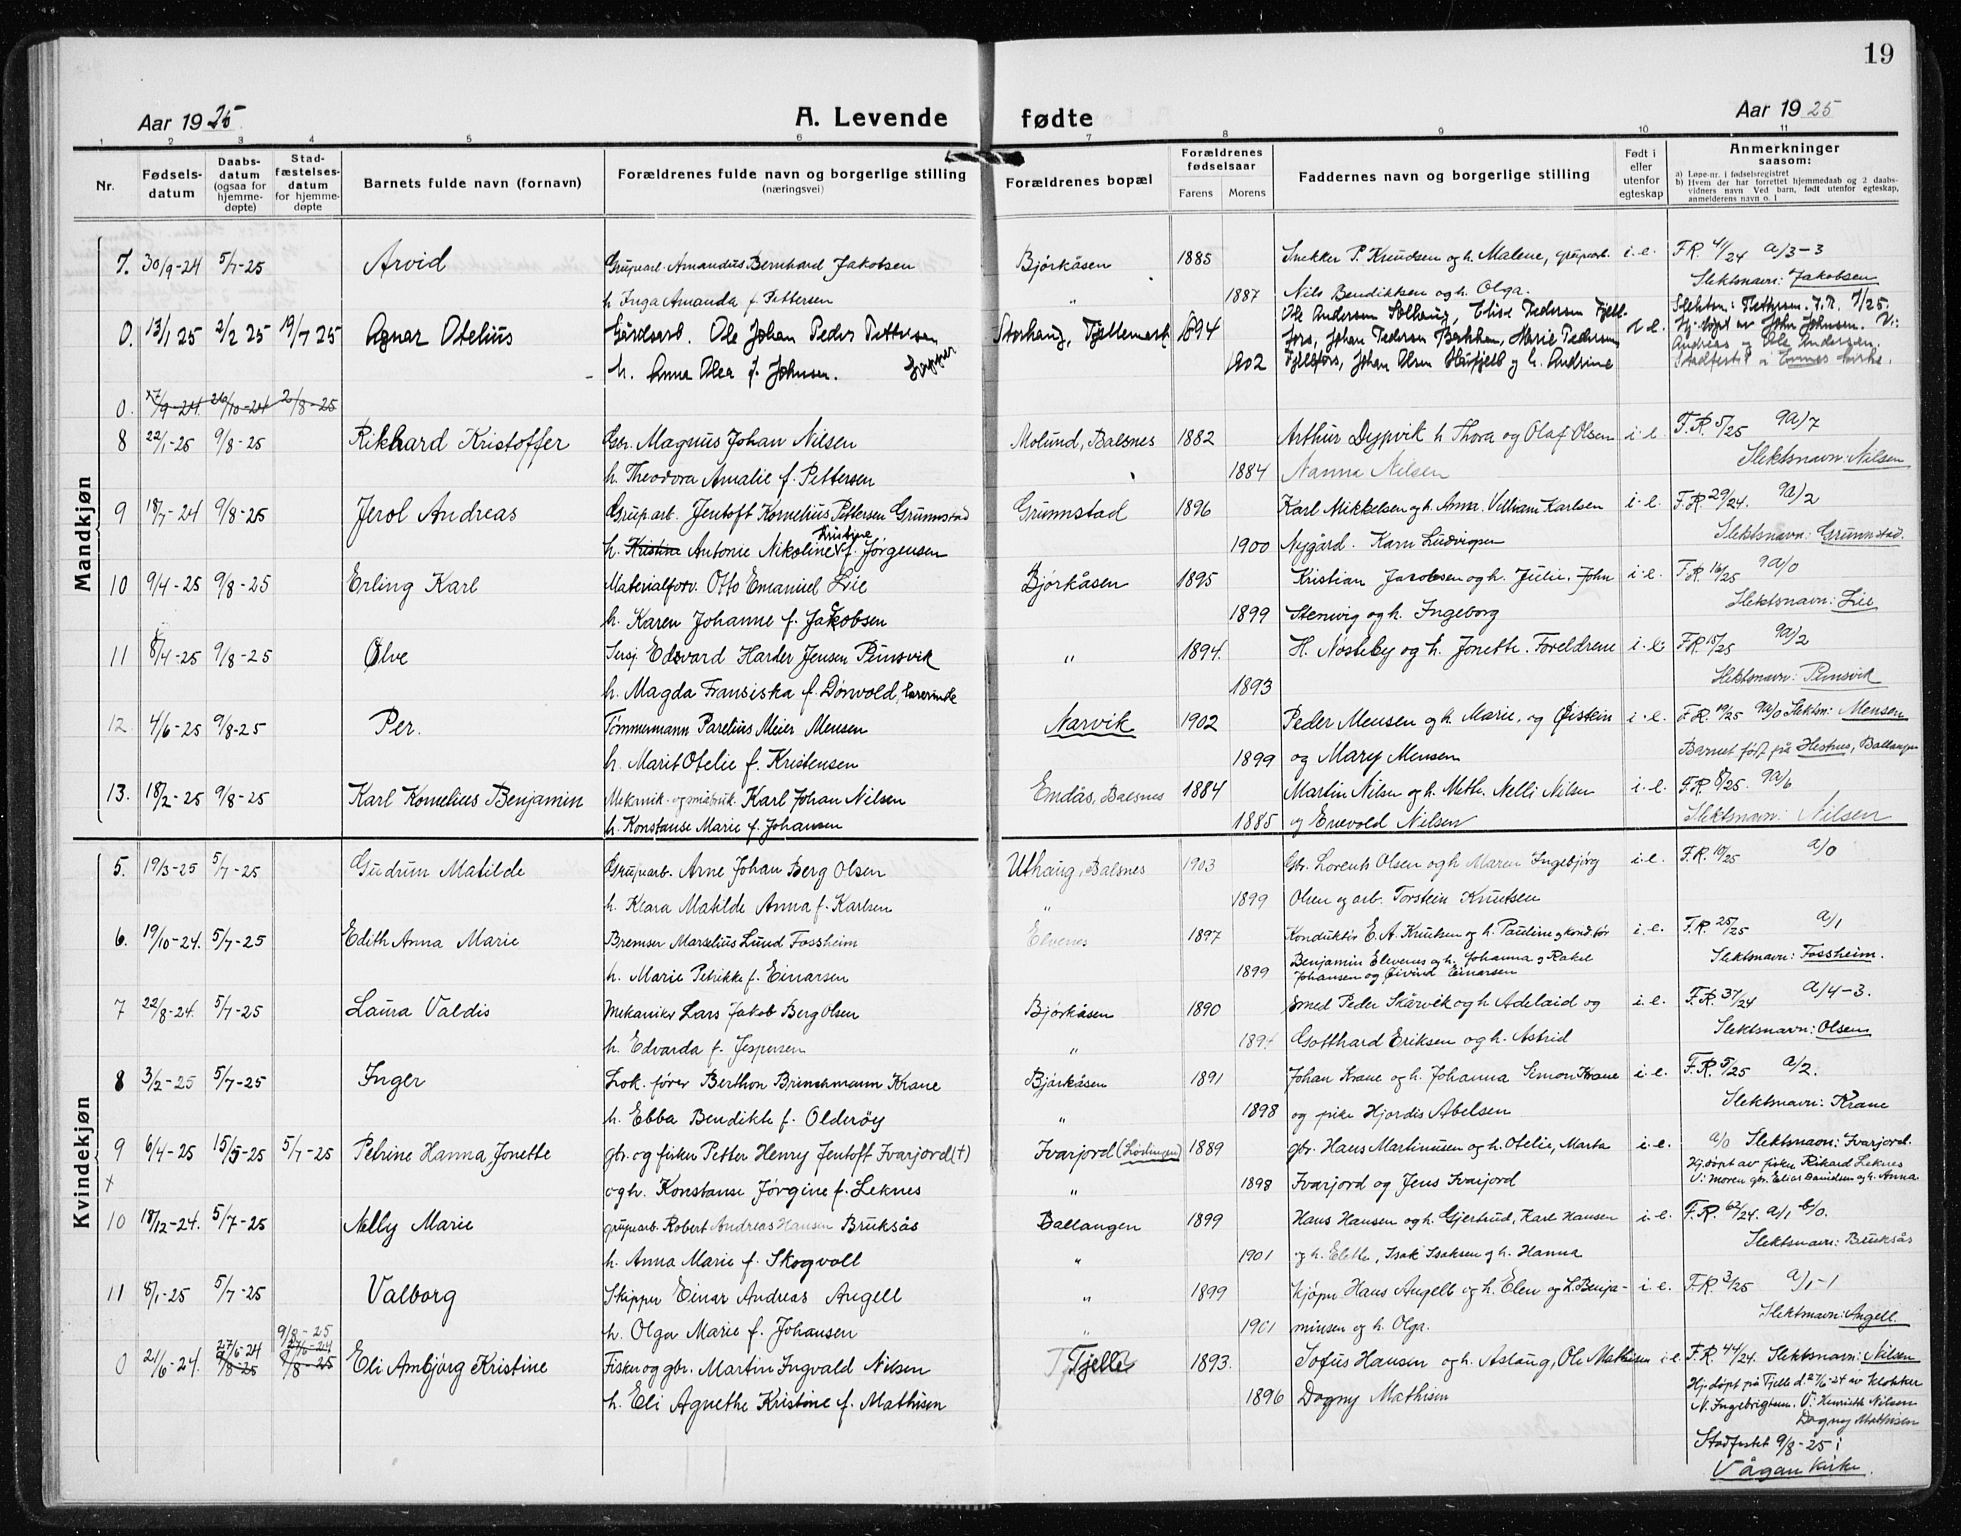 19
Aar 1925
A. Levende fødte
Aar 1925
1 2 3 4 5 6 7 8 9 10 11
Nr.
Fødsels-datum
Daabs-datum (ogsaa for hjemme-døpte)
Stad-fæstelses-datum for hjemme-døpte
Barnets fulde navn (fornavn)
Forældrenes fulde navn og borgerlige stilling (næringsvei)
Forældrenes bopæl
Forældrenes fødselsaar
Farens Morens
Faddernes navn og borgerlige stilling
Født i eller utenfor egteskap
Anmerkninger saasom:
a) Løpe-nr. i fødselsregistret
b) Hvem der har forrettet hjemmedaab og 2 daabs-vidners navn Ved barn, født utenfor egteskap, anmelderens navn o. l
Mandkjøn
7. 30/9-24 5/7-25 Arvid Gruparb. Amandus Bernhard Jakobsen Bjørkåsen 1885 Snekker P. Knudsen og h. Malene, gruparb. i.e. F.R. 41/24 a/3-3
h. Inga Amanda f. Pettersen " 1887 Nils Bendiktsen og h. Olga. Slektsnavn: Jakobsen
0. 13/1 25 2/2 25 19/7 25 Agnar Otelius Gårdsarb. Ole Johan Peder Pettersen Storhaug, Tjeldemark 1894 Ole Andersen Solhaug, Elise Pedersen Fjell-
fors, Johan Pedersen Bakken, Marie Pedersen
h. Anna Olea f. Johnsen. 1902 Fjellfors, Johan Olsen Høifjell og h. Andrine
Slektsn: Pettersen. F.R. 1/25.
Hj. døpt av John Johnsen. V:
Andreas og Ole Andersen.
Stadfestet i Evenes kirke.
0. 27/9-24. 26/10-24 2/8-25
8 22/1-25 9/8-25 Rikhard Kristoffer Gbr. Magnus Johan Nilsen Molund, Balsnes 1882 Arthur Dypvik h Thora og Olaf Olsen i.e. F.R. 5/25 9a/7
h. Theodora Amalie f. Pettersen 1884 Nanna Nilsen Slektsnavn: Nilsen
9 18/7-24 9/8-25 Jerol Andreas Gruparb. Jentoft Kornelius Pettersen Grunnstad Grunnstad 1896 Karl Mikkelsen og h. Anna. Vilham Karlsen i.e. F.R. 29/24. 9a/2
h. Kristine Antonie Nikoline Kristine f. Jørgensen 1900 Nygård. Karn Ludvigsen Slektsnavn: Grunnstad.
10 9/4-25 9/8-25 Erling Karl Materialforv. Otto Emanuel Lie Bjørkåsen 1895 Kristian Jacobsen og h. Julie. John i.e. F.R. 16/25 9a/0
h. Karen Johanne f. Jakobsen 1899 Stenvig og h. Ingeborg Slektsnavn: Lie
11 8/4-25 9/8-25 Ølve Sersj. Edvard Harder Jensen Punsvik " 1894. H. Nosteby og h. Jonette. Foreldrene i.e. F.R. 15/25 9a/2
h. Magda Fransiska f. Dønvold, lærerinde 1893 Slektsnavn: Punsvik
12. 4/6-25 9/8-25 Per. Tømmermann Parelius Meier Mensen Narvik 1902 Peder Mensen og h. Marie, og Øistein i.e. F.R. 19/25 9a/0 Slektsn: Mensen
h. Marit Otelie f. Kristensen 1899 og Mary Mensen Barnet født på Hestnes, Ballangen
13. 18/2-25 9/8-25 Karl Kornelius Benjamin Mekanik. og småbruk. Karl Johan Nilsen Emdås, Balsnes 1884 Martin Nilsen og h. Mette. Nelli Nilsen i.e. F.R. 8/25. 9a/6
h. Konstanse Marie f. Johansen 1885 og Enevold Nilsen Slektsnavn: Nilsen
Kvindekjøn
5. 19/3-25 5/7-25 Gudrun Matilde Gruparb. Arne Johan Berg Olsen Uthaug, Balsnes 1903 Gbr. Lorents Olsen og h Maren Ingebjørg i.e. F.R. 10/25 a/0
h. Klara Matilde Anna f. Karlsen " 1899 Olsen og arb. Torstein Knutsen
6. 19/10-24. 5/7-25 Edith Anna Marie Bremser Marselius Lund Fossheim Elvenes 1897 Konduktør E. A. Knutsen og h. Pauline og kondktør i.e. F.R. 25/25 a/1
h. Marie Petrikke f. Einarsen 1899 Benjamin Elvenes og h. Johanna og Rakel
Johansen og Øivind Einarsen Slektsnavn: Fossheim.
7 22/8-24. 5/7-25 Laura Valdis Mekaniker Lars Jakob Berg Olsen Bjørkåsen 1890 Smed Peder Skårvik og h Adelaid og i.e. F.R. 37/24 a/4-3.
h. Edvarda f. Jespersen " 1894 Gotthard Eriksen og h. Astrid Slektsnavn: Olsen
8 3/2-25 5/7-25 Inger Lok. fører Berthon Brinchmann Krane Bjørkåsen 1891 Johan Krane og h. Johanna Simon Krane i.e. F.R. 5/25 a/2.
h. Ebba Bendikte f. Olderøy " 1898 og pike Hjordis Abelsen Slektsnavn: Krane
9 6/4-25 15/5-25 5/7-25 Petrine Hanna Jonette gbr. og fisker Petter Henry Jentoft Ivarjord (†) Ivarjord (Lødingen) 1889 gbr. Hans Martinusen og h. Otelie, Marta i.e. a/0 Slektsnavn: Ivarjord.
+ og h. Konstanse Jørgine f. Leknes " 1898 Ivarjord og Jens Ivarjord
Hj. døpt av fisker Rikard Leknes
V: moren gbr. Elias Danielsen og h. Anna.
10 18/12-24. 5/7-25 Nelly Marie gruparb. Robert Andreas Hansen Bruksås Ballangen 1899 Hans Hansen og h. Gjertrud, Karl Hansen i.e. F.R. 62/24. a/1 b/0.
h. Anna Marie f. Skogvoll " 1901 og h. Elette, Isak Isaksen og h. Hanna Slektsnavn: Bruksås
11 8/1-25 5/7-25 Valborg Skipper Einar Andreas Angell " 1899 kjøpm Hans Angell og h. Elen og L. Benja- i.e. F.R. 3/25 a/1-1
h. Olga Marie f. Johansen " 1901 minsen og h. Olga. Slektsnavn: Angell
0 21/6-24. 27/6-24 9/8-25 9/8-25 27/6-24 9/8-25 Eli Ambjørg Kristine Fisker og gbr. Martin Ingvald Nilsen Tjelle 1893. Sofus Hansen og h. Aslaug, Ole Mathisen i.e. F.R. 44/24. Slektsnavn: Nilsen
h. Eli Agnethe Kristine f. Mathisen 1896 Dagny Mathisen
Hj. døpt på Tjelle d. 27/6-24 av klokker
N. Ingebrigtsen. V: Henriette Nilsen
Dagny Mathisen
Stadfestet 9/8-25 i
Vågan kirke.